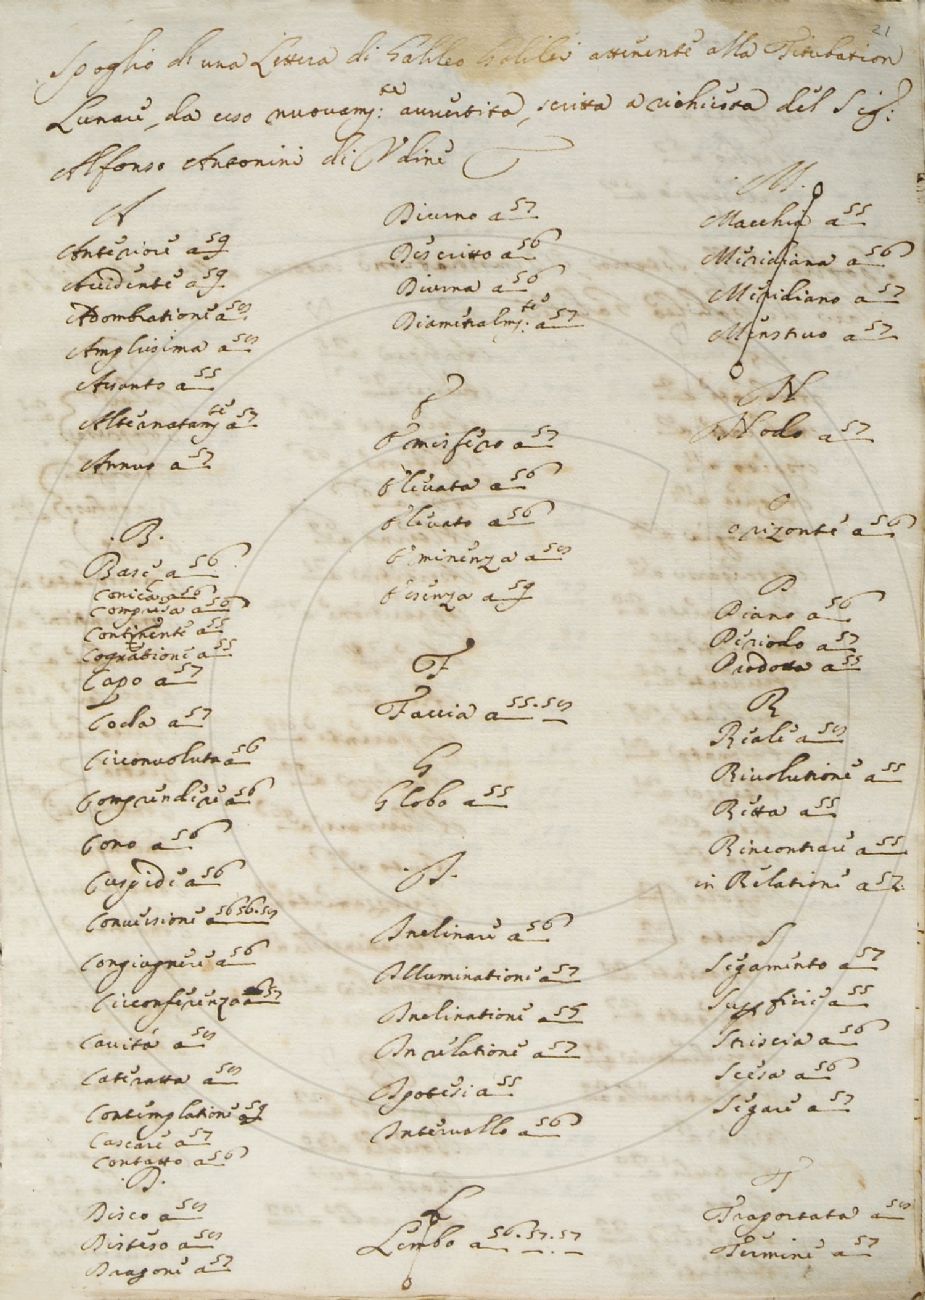 21
Spoglio di una Lettera di Galileo Galilei attenente alla Titubation
Lunare, da esso nuovam:te avvertita, scritta a richiesta del Sig:r
Alfonso Antonini di Udine
A
Anteriore a 59
Accidente a 59
Adombratione a
Amplissima a
Assunto a 55
Alternatamte a 57
Annuo a 57
.B.
Base a 56
Conica a 56
Compresa a 56
Continente a 55
Cognitione a 55
Capo a 57
Coda a 57
Circonvoluta a 56
Comprendere a 56
Cono a 56
Cuspide a 56
Conversione a 56 56.
Congiugnere a 56
Circonferenza a 57
Cavità a
Cateratta a
Contemplatione a 59
Cascare a 57
Contatto a 56
.D.
Disco a
Disteso a
Dragone a 57
Diurno a 57
Descritto a 56
Diurna a 56
Diametralm:te a 57
E
Emisfero a 57
Elevata a 56
Elevato a 56
Eminenza a
Essenza a 59
F
Faccia a 55.
G
Globo a 55
.I.
Inclinare a 56
Illuminatione a 57
Inclinatione a
In relatione a 57
Ipotesi a 55
Intervallo a 56
L
Lembo a 56.57.57
.M.
Macchie a 55
Meridiana a 56
Meridiano a 57
Menstruo a 57
N
Nodo a 57
O
Orizonte a 56
P
Piano a 56
Periodo a 57
Prodotta a 55
R
Reale a
Rivolutione a 55
Retta a 55
Rincontrare a 55
in Relatione a 57.
S
Segamento a 57
Superficie a 55
Striscia a 56
Scesa a 56
Segare a 57
T
Traportata a
Termine a 57